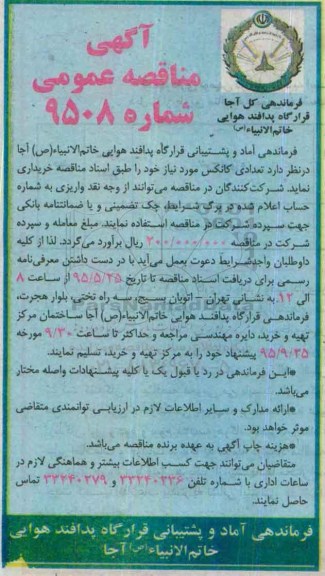 آگهی
مناقصه عمومی
شماره ۹۵۰۸
فرماندهی کل آجا
قرارگاه پدافند هوایی
خاتم‌الانبیاء(ص)
فرماندهی آماد و پشتیبانی قرارگاه پدافند هوایی خاتم‌الانبیاء(ص) آجا
درنظر دارد تعدادی کانکس مورد نیاز خود را طبق اسناد مناقصه خریداری
نماید. شرکت‌کنندگان در مناقصه می‌توانند از وجه نقد واریزی به شماره
حساب اعلام شده در برگ شرایط، چک تضمینی و یا ضمانتنامه بانکی
جهت سپرده شرکت در مناقصه استفاده نمایند. مبلغ معامله و سپرده
شرکت در مناقصه ۳۰۰/۰۰۰/۰۰۰ ریال برآورد می‌گردد. لذا از کلیه
داوطلبان واجدشرایط دعوت بعمل می‌آید با در دست داشتن معرفی‌نامه
رسمی برای دریافت اسناد مناقصه تا تاریخ ۹۵/۵/۲۵ از ساعت ۸
الی ۱۲ به نشانی تهران - اتوبان بسیج، سه راه تختی، بلوار هجرت،
فرماندهی قرارگاه پدافند هوایی خاتم‌الانبیاء(ص) آجا ساختمان مرکز
تهیه و خرید، دایره مهندسی مراجعه و حداکثر تا ساعت ۹/۳۰ مورخه
پیشنهاد خود را به مرکز تهیه و خرید، تسلیم نمایند.
●این فرماندهی در رد یا قبول یک یا کلیه پیشنهادات واصله مختار
می‌باشد.
●ارائه مدارک و سایر اطلاعات لازم در ارزیابی توانمندی متقاضی
موثر خواهد بود.
●هزینه چاپ آگهی به عهده برنده مناقصه می‌باشد.
متقاضیان می‌توانند جهت کسب اطلاعات بیشتر و هماهنگی لازم در
ساعات اداری با شماره تلفن ۳۳۲۴۰۲۳۶ و ۳۳۲۴۰۲۷۹ تماس
حاصل نمایند.
فرماندهی آماد و پشتیبانی قرارگاه پدافند هوایی
خاتم‌الانبیاء(ص) آجا